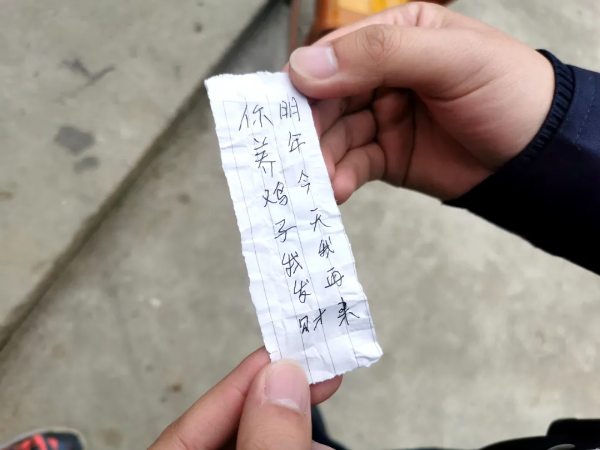 明年今天我再来
你养鸡子我发财